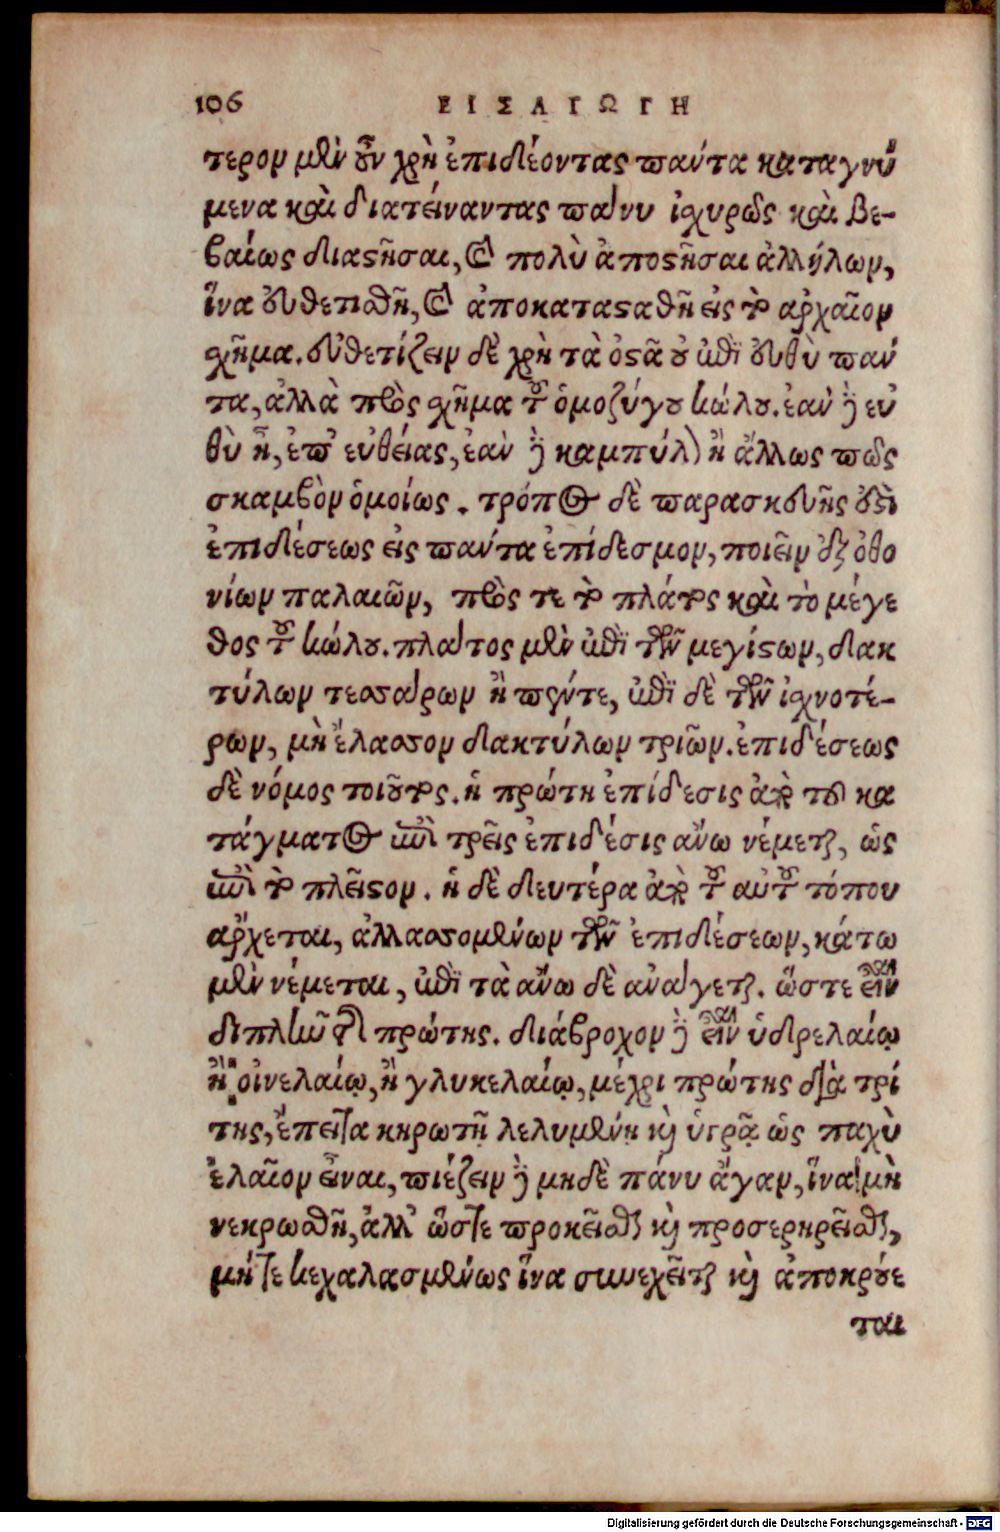 106 ΕΙΣΑΓΩΓΗ
τερον μὲν οὖν χρὴ ἐπιδέοντας πάντα καταγνύ
μενα καὶ διατείναντας πάνυ ἰσχυρῶς καὶ βε-
βαίως διαστῆσαι, καὶ πολὺ ἀποστῆσαι ἀλλήλων,
ἵνα εὐθετισθῇ, καὶ ἀποκατασταθῇ εἰς τὸ ἀρχαῖον
σχῆμα. εὐθετίζειν δὲ χρὴ τὰ ὀστᾶ οὐ ἐπὶ εὐθὺ παν
τα, ἀλλὰ πρὸς σχῆμα τοῦ ὁμοζύγου κώλου. ἐὰν ᾖ εὐ
θὺ ᾖ, ἐπ' εὐθείας, ἐὰν ᾖ καμπύλον ἢ ἄλλως πως
σκαμβὸν ὁμοίως. τρόπος δὲ παρασκευῆς
ἐπιδέσεως εἰς πάντα ἐπίδεσμον, ποιεῖν ἐξ ὀθο
νίων παλαιῶν, πρός τε τὸ πλάτος καὶ τὸ μέγε
θος τοῦ κώλου. πλάτος μὲν ἐπὶ τῶν μεγίστων, δακ
τύλων τεσσάρων ἢ πέντε, ἐπὶ δὲ τῶν ἰσχνοτέ-
ρων, μὴ ἔλασσον δακτύλων τριῶν. ἐπιδέσεως
δὲ νόμος τοιοῦτος. ἡ πρώτη ἐπίδεσις ἀπὸ τοῦ κα
τάγματος ἐπὶ τρεῖς ἐπιδέσις ἄνω νέμεται, ὡς
ἐπὶ τὸ πλεῖστον. ἡ δὲ δευτέρα ἀπὸ τοῦ αὐτοῦ τόπου
ἄρχεται, ἀλλασσομένων τῶν ἐπιδέσεων, κάτω
μὲν νέμεται, ἐπὶ τὰ ἄνω δὲ ἀνάγεται. ὥστε εἶναι
διπλῆν τῆς πρώτης. διάβροχον ᾖ εἶναι ὑδρελαίῳ
ἢ οἰνελαίῳ, ἢ γλυκελαίῳ, μέχρι πρώτης διὰ τρί
της, ἔπειτα κηρωτῇ λελυμένῃ καὶ ὑγρᾷ ὡς παχὺ
ἐλαῖον εἶναι, πιέζειν ᾖ μηδὲ πάνυ ἄγαν, ἵνα μὴ
νεκρωθῇ, ἀλλ' ὥστε προκεῖσθαι καὶ προσερηρεῖσθαι,
μήτε κεχαλασμένως ἵνα συνεχεῖται καὶ ἀποκρύε
ται
Digitalisierung gefördert durch die Deutsche Forschungsgemeinschaft - DFG